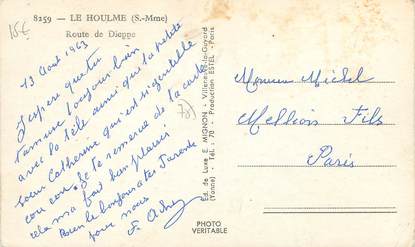 8259 — LE HOULME (S.-Mme)
Route de Dieppe
13 Aout 1963
J'espere que tu
t'amuse toujours bien
avec la tele ainsi que ta petite
soeur Catherine qui est si gentille
cou cou je te remercie de ta carte
cela m'a fait bien plaisir
Bien le bonjour a tes Parents
pour nous
Ed. de Luxe E. MIGNON - Villeneuve-la-Guyard
(Yonne) - Tél. : 70 - Production ESTEL -
PHOTO
VERITABLE
Monsieur Michel
Mellion Fils
Paris